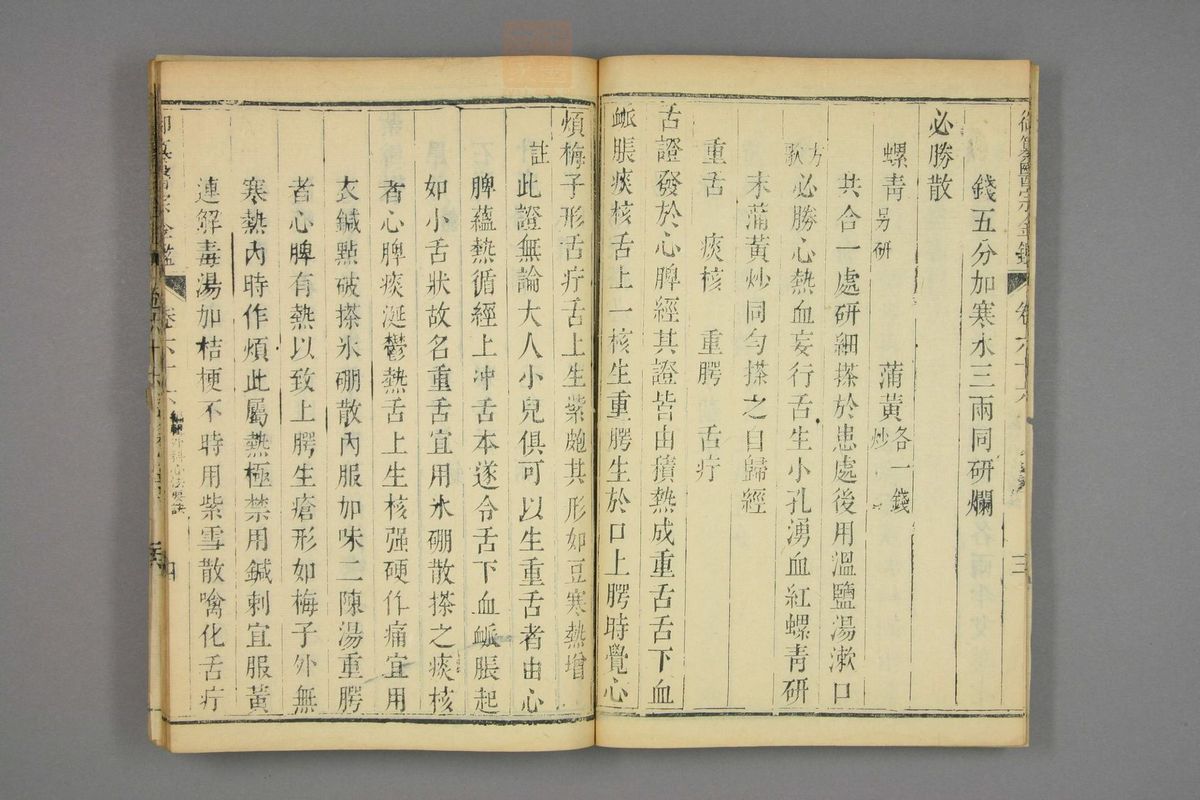 御纂醫宗金鑑 卷六十六 三
錢五分加寒水三兩同研爛
必勝散
螺青另研 蒲黃炒各一錢
共合一處研細搽於患處後用溫鹽湯漱口
方歌 必勝心熱血妄行舌生小孔湧血紅螺青研
末蒲黃炒同勻搽之自歸經
重舌 痰核 重腭 舌疔
舌證發於心脾經其證皆由積熱成重舌舌下血
衇脹痰核舌上一核生重腭生於口上腭時覺心
煩梅子形舌疔舌上生紫皰其形如豆寒熱增
註 此證無論大人小兒俱可以生重舌者由心
脾蘊熱循經上冲舌本遂令舌下血衇脹起
如小舌狀故名重舌宜用氷硼散搽之痰核
者心脾痰涎鬱熱舌上生核强硬作痛宜用
衣鍼點破搽氷硼散內服加味二陳湯重腭
者心脾有熱以致上腭生瘡形如梅子外無
寒熱內時作煩此屬熱極禁用鍼刺宜服黃
連解毒湯加桔梗不時用紫雪散噙化舌疔
御纂醫宗金鑑 卷六十六 編輯外科心法要訣 四